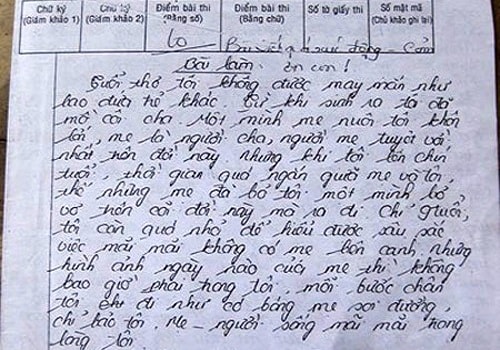 Chữ ký
(Giám khảo 1)
Chữ ký
(Giám khảo 2)
Điểm bài thi
(Bằng số)
Điểm bài thi
(Bằng chữ)
Số tờ giấy thi
Số mật mã
(Chủ khảo ghi lại)
10
Bài viết quá xúc động - Cảm
ơn con!
Bài làm
Tuổi thơ tôi không được may mắn như
bao đứa trẻ khác. Từ khi sinh ra tôi đã
mồ côi cha. Một mình mẹ nuôi tôi khôn
lớn, mẹ là người cha, người mẹ tuyệt vời
nhất trên đời này nhưng khi tôi lên chín
tuổi, thời gian quá ngắn giữa mẹ và tôi,
thế nhưng mẹ đã bỏ tôi một mình bơ
vơ trên cõi đời này mà ra đi. Chỉ 9 tuổi,
tôi còn quá nhỏ để hiểu được sâu sắc
việc mãi mãi không có mẹ bên cạnh nhưng
hình ảnh ngày nào của mẹ thì không
bao giờ phai trong tôi. mỗi bước chân
tôi khi đi như có bóng mẹ soi đường,
chỉ bảo tôi. Mẹ - người sống mãi mãi trong
lòng tôi.